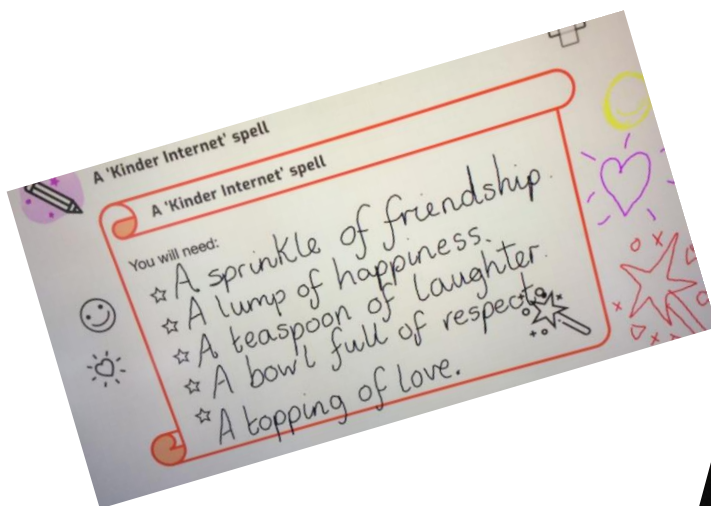 A 'Kinder Internet' spell
A 'Kinder Internet' spell
You will need:
A sprinkle of friendship.
A lump of happiness.
A teaspoon of laughter.
A bowl full of respect.
A topping of love.